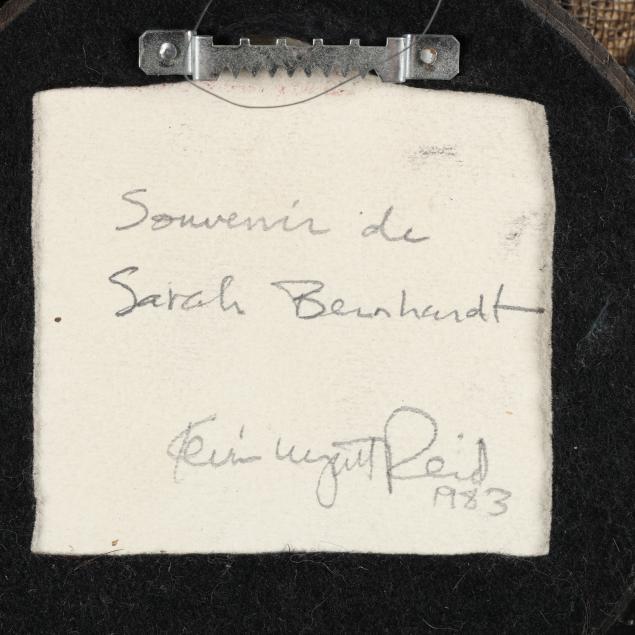 Souvenir de
Sarah Bernhardt
Kevin Wyatt Reid
1983